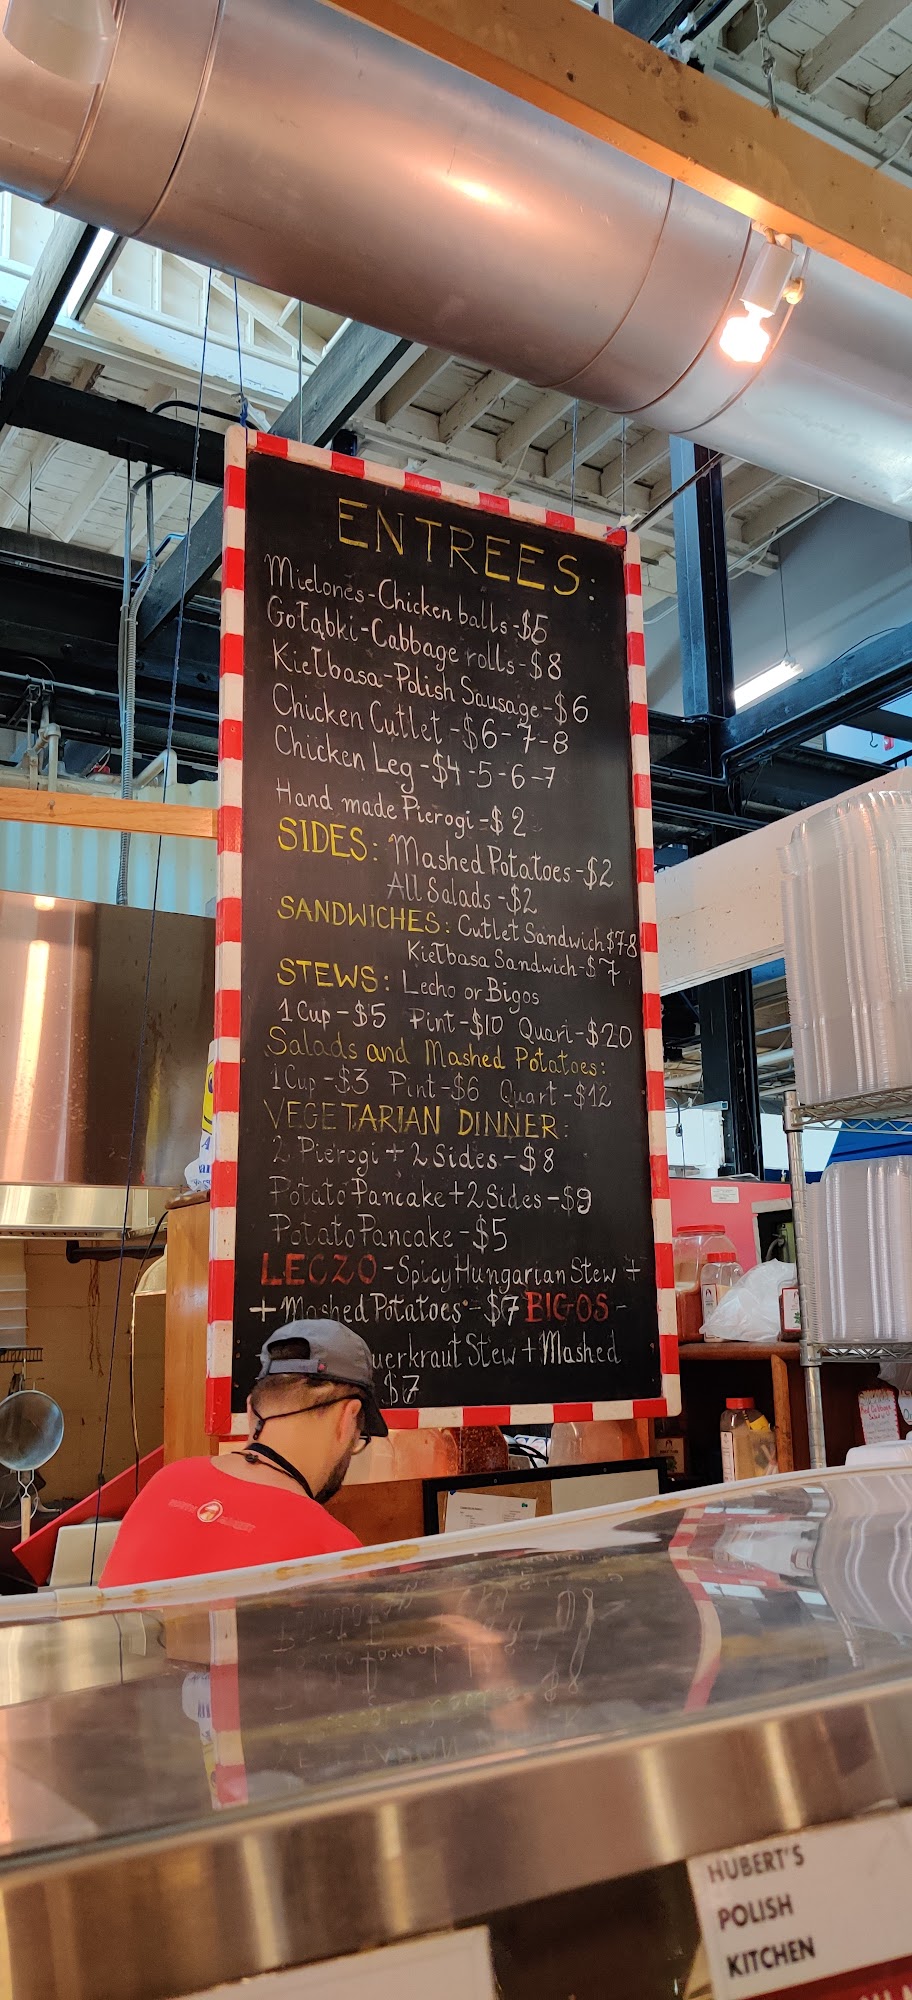 ENTREES:
Mielones-Chicken balls-$5
Gołąbki-Cabbage rolls-$8
Kiełbasa-Polish Sausage-$6
Chicken Cutlet-$6-7-8
Chicken Leg-$4-5-6-7
Hand made Pierogi-$2
SIDES: Mashed Potatoes-$2
All Salads-$2
SANDWICHES: Cutlet Sandwich$7-8
Kiełbasa Sandwich-$7
STEWS: Lecho or Bigos
1 Cup-$5 Pint-$10 Quart-$20
Salads and Mashed Potatoes:
1 Cup-$3 Pint-$6 Quart-$12
VEGETARIAN DINNER:
2 Pierogi+2 Sides-$8
Potato Pancake+2 Sides-$9
Potato Pancake-$5
LECZO-Spicy Hungarian Stew +
+Mashed Potatoes-$7 BIGOS-
uerkraut Stew+Mashed
$7
HUBERT'S
POLISH
KITCHEN